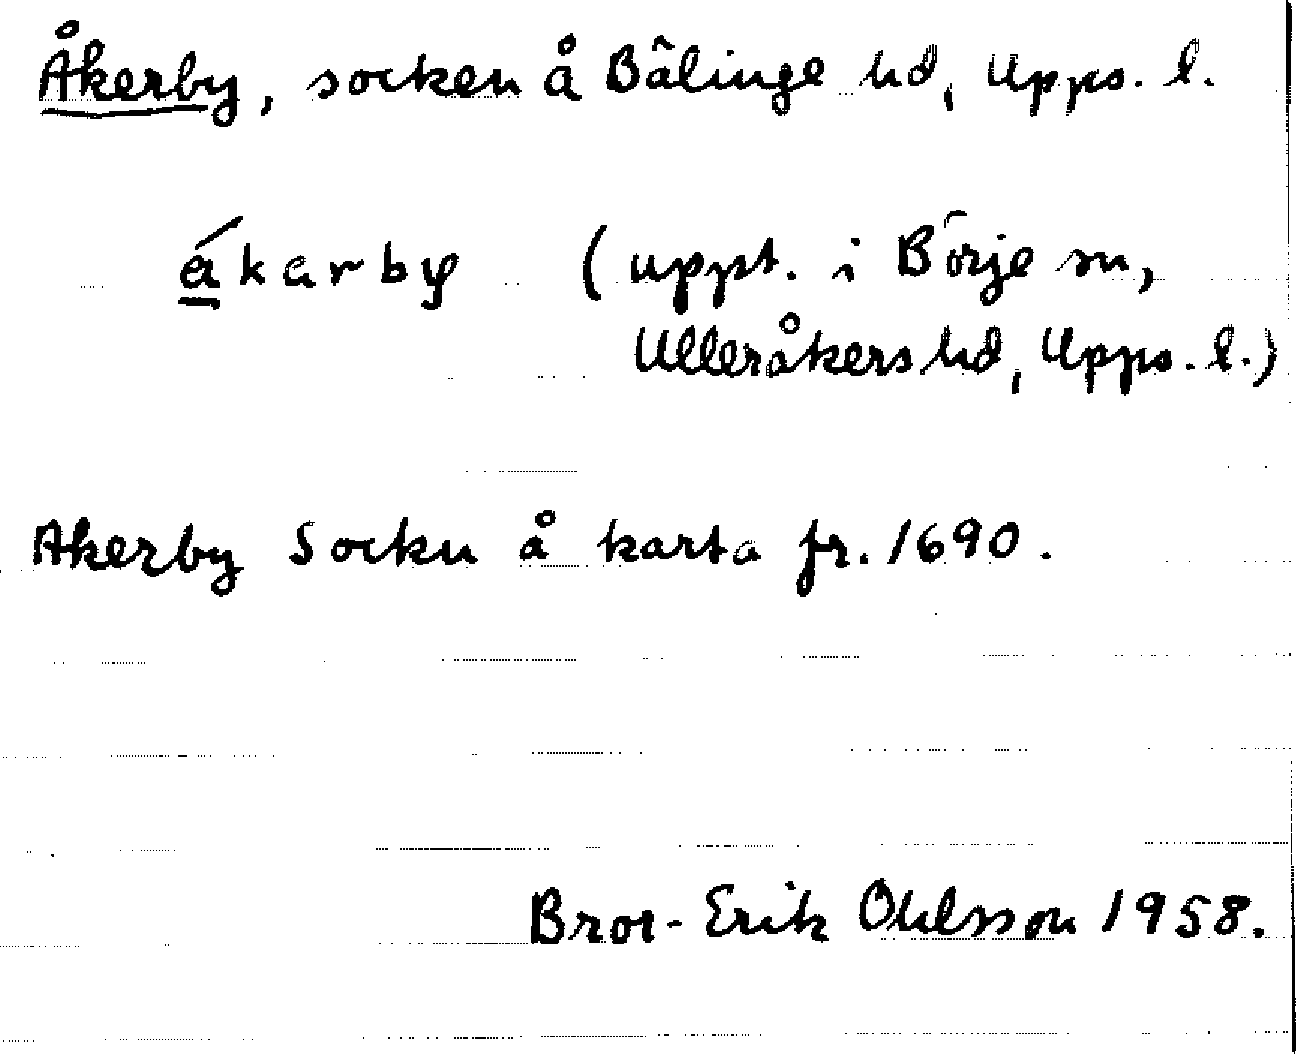 Åkerby, socken å Bälinge hd, Upps. l.
ákarby (uppt. i Börje sn,
Ulleråkers hd, Upps. l.)
Åkerby Sockn å karta fr. 1690.
Bror-Erik Ohlsson 1958.